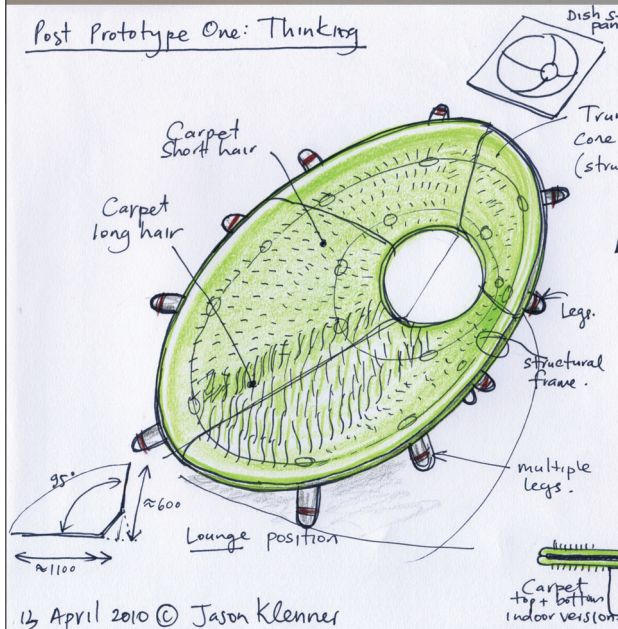 Post Prototype One: Thinking
Dish
pan
Carpet
Short hair
Cone
Carpet
long hair
Legs.
structural
frame.
95°
≈600
≈1100
multiple
legs.
Lounge position
Carpet
top + bottom
indoor version
13 April 2010 © Jason Klenner